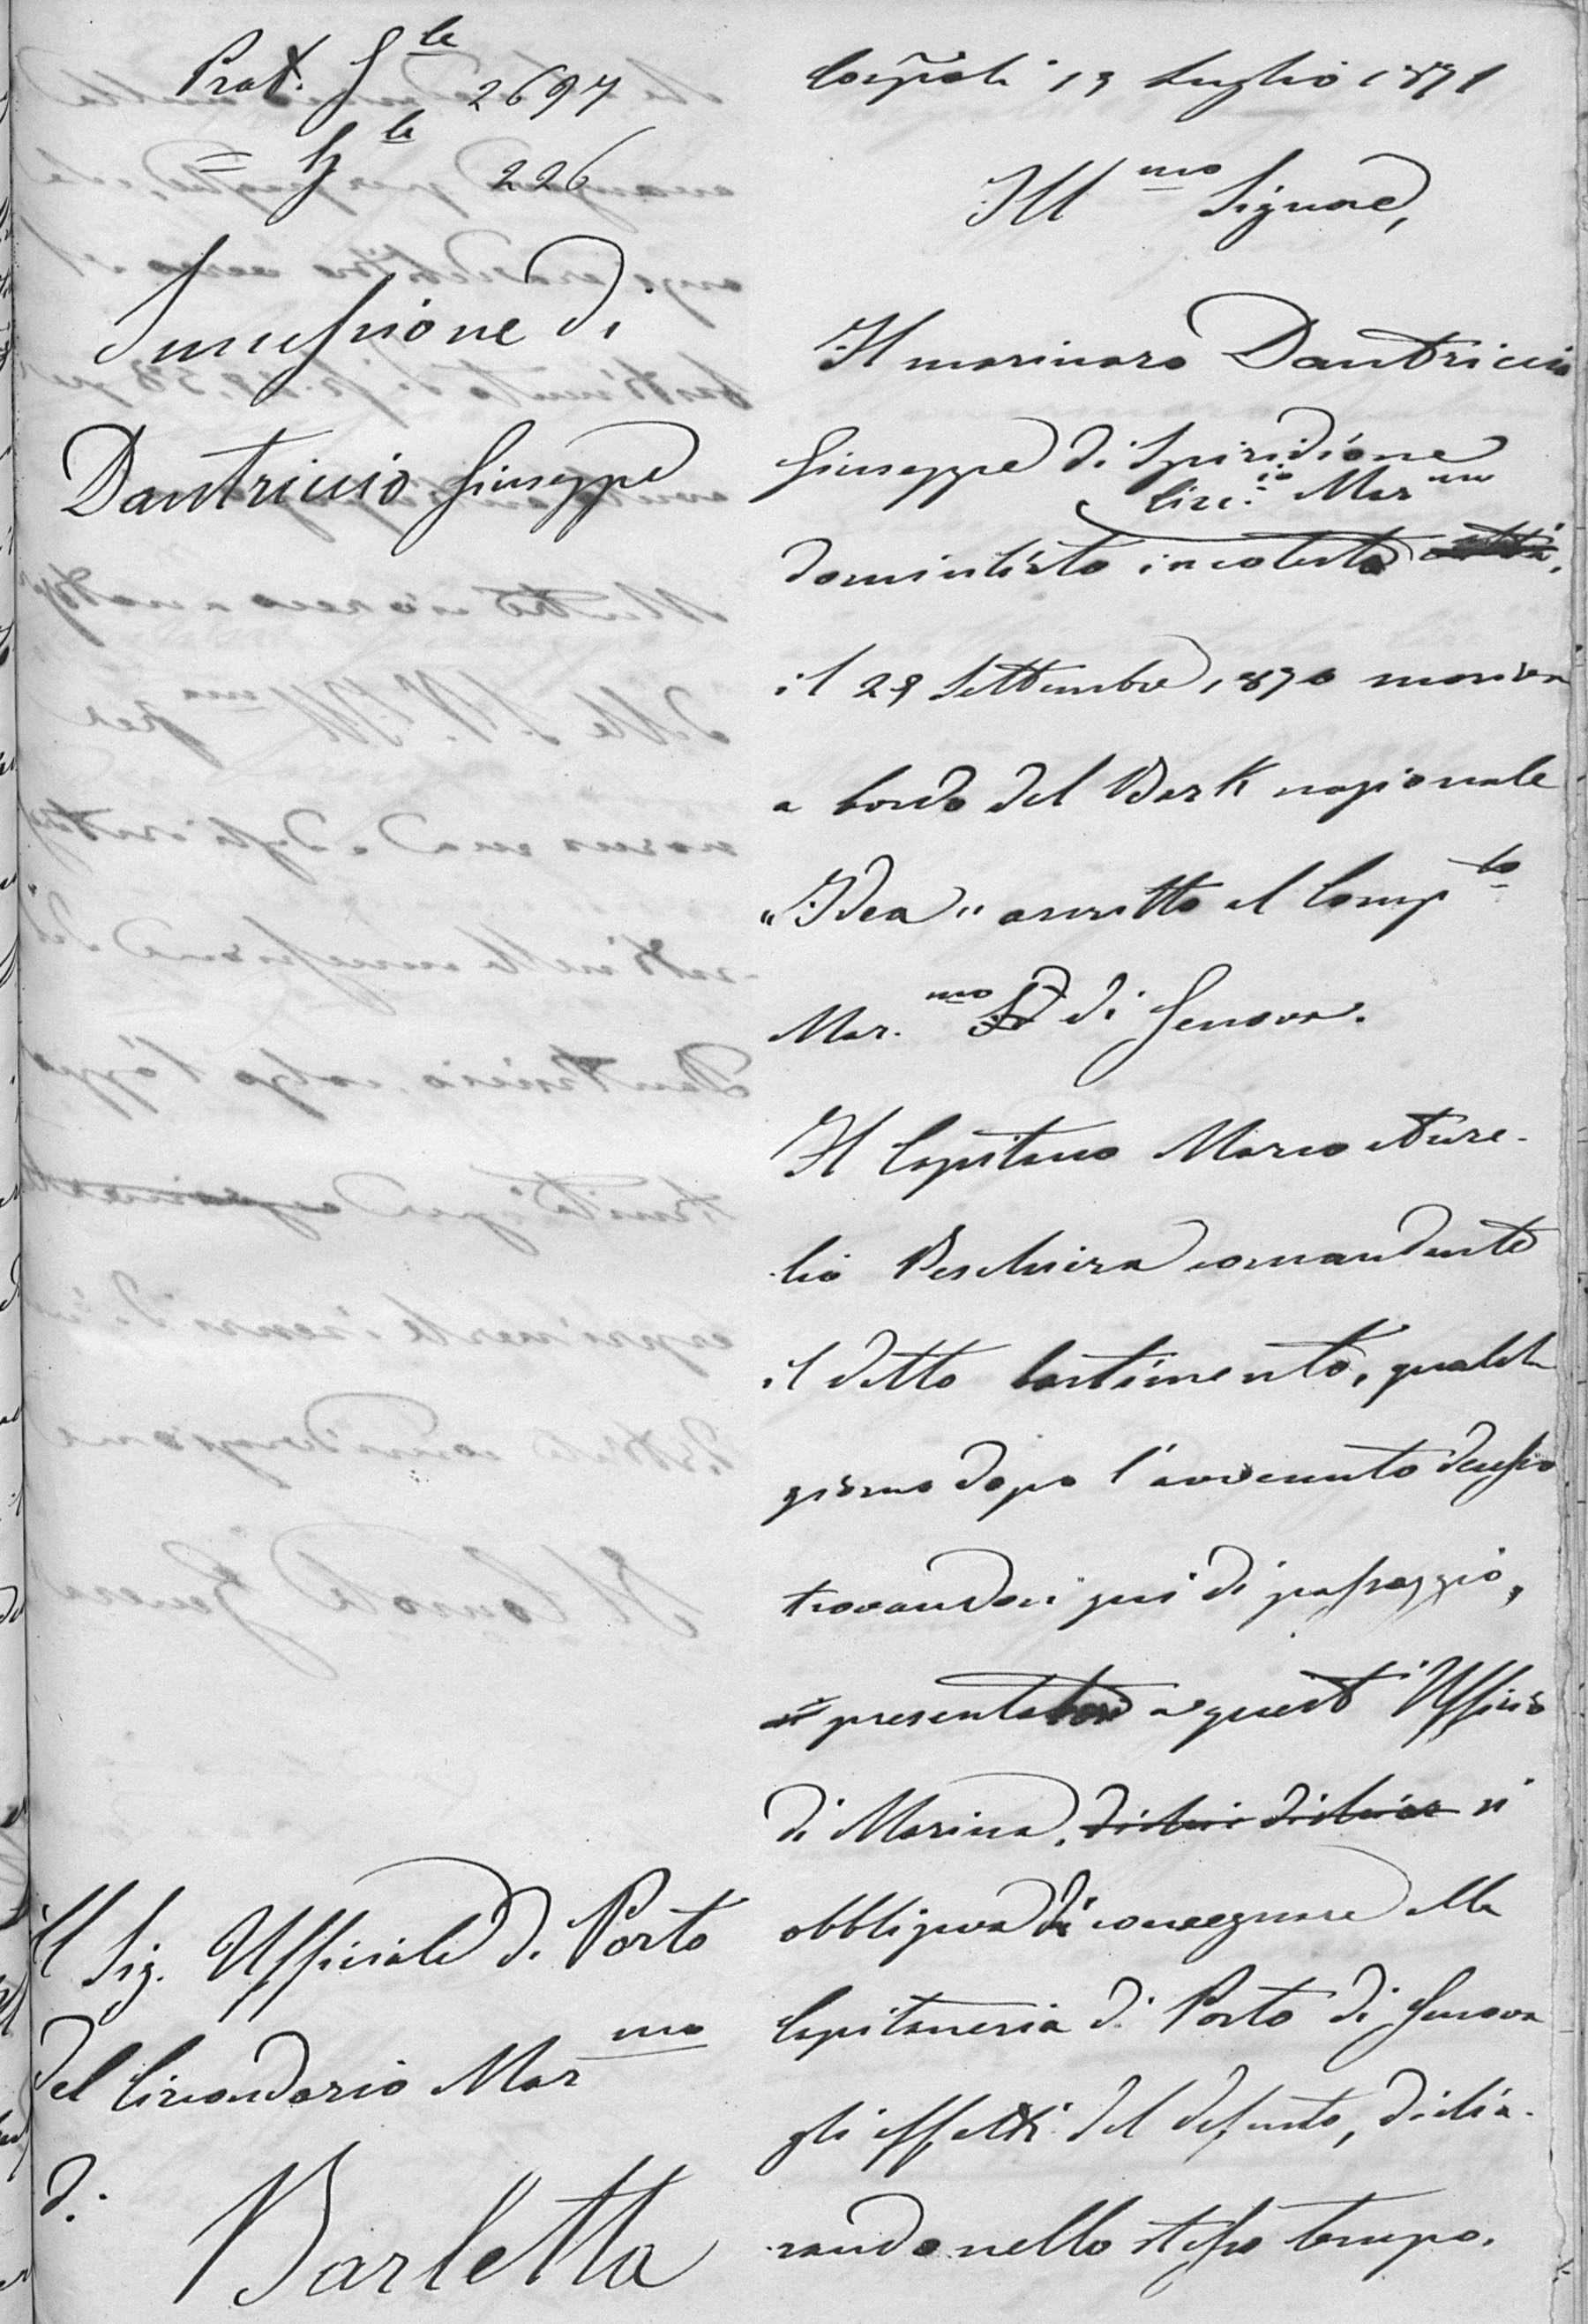 Prot. Gle 2697
= Sle 226
Successione di
Dantriccio Giuseppe
Il Sig. Ufficiale di Porto
del Circondario Marmo
di
Barletta
Costpoli 13 Luglio 1871
Illmo Signore,
Il marinaro Dantriccio
Giuseppe di Spiridione
Circ.io Marmo
domiciliato in codesto
il 29 Settembre 1870 moriva
a bordo del Bark nazionale
"Idea" ascritto al Compto
Mar.mo di Genova.
Il Capitano Marco Aure-
lio Peschiera comandante
il detto bastimento, qualche
giorno dopo l'avvenuto decesso
trovandosi qui di passaggio,
presentatosi a quest'Ufficio
di Marina, si
obbligava di consegnare alla
Capitaneria di Porto di Genova
gli effetti del defunto, dichia-
rando nello stesso tempo.